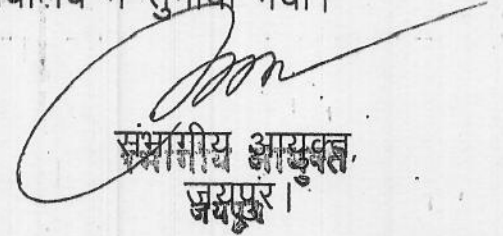 में सुनाया गया।
संभागीय आयुक्त,
जयपुर।